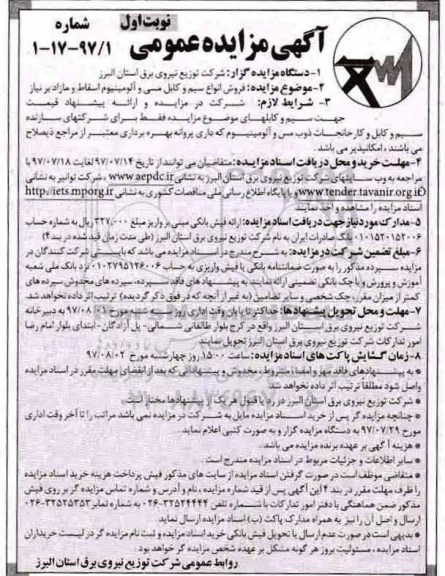 نوبت اول
شماره
۱-۱۷-۹۷/۱
آگهی مزایده عمومی
۱-دستگاه مزایده گزار: شرکت توزیع نیروی برق استان البرز
۲-موضوع مزایده: فروش انواع سیم و کابل مسی و آلومینیوم اسقاط و مازاد بر نیاز
۳- شرایط لازم: شرکت در مزایده و ارائه پیشنهاد قیمت
جهت سیم و کابلهای موضوع مزایده فقط برای شرکتهای سازنده
سیم و کابل و کارخانجات ذوب مس و آلومینیوم که داری پروانه بهره برداری معتبر از مراجع ذیصلاح
می باشند ، امکانپذیر می باشد.
۴-مهلت خرید و محل دریافت اسناد مزایده: متقاضیان می توانند از تاریخ ۹۷/۰۷/۱۴ لغایت ۹۷/۰۷/۱۸ با
مراجعه به وب سایتهای شرکت توزیع نیروی برق استان البرز به نشانی www.aepdc.ir ، شرکت توانیر به نشانی
www.tender.tavanir.org.ir و یا پایگاه اطلاع رسانی ملی مناقصات کشوری به نشانی http://iets.mporg.ir
اسناد مزایده را مشاهده و اخذ نمایند
۵-مدارک مورد نیاز جهت دریافت اسناد مزایده: ارائه فیش بانکی مبنی بر واریز مبلغ ۳۲۷/۰۰۰ ریال به شماره حساب
۰۱۰۱۵۲۰۱۵۲۰۰۶ بانک صادرات ایران به نام شرکت توزیع نیروی برق استان البرز (طی مدت زمان قید شده در بند۴)
۶-مبلغ تضمین شرکت در مزایده: به شرح مندرج در اسناد مزایده می باشد که بایستی شرکت کنندگان در
مزایده سپرده مذکور را به صورت ضمانتنامه بانکی یا فیش واریزی به حساب ۰۱۰۲۷۹۵۱۲۶۰۰۶ نزد بانک ملی شعبه
آموزش و پرورش و یا چک بانکی تضمینی ارائه نمایند به پیشنهاد های فاقد سپرده، سپرده های مخدوش، سپرده های
کمتر از میزان مقرر، چک شخصی و سایر تضامین (به غیر از آنچه که در فوق ذکر گردیده) ترتیب اثر داده نخواهد شد.
۷-مهلت و محل تحویل پیشنهادها: حداکثر تا پایان وقت اداری روز مورخ ۹۷/۰۸ به دبیرخانه
شرکت توزیع نیروی برق استان البرز واقع در کرج بلوار طالقانی شمالی- پل آزادگان - ابتدای بلوار امام رضا
امور تدارکات شرکت توزیع نیروی برق استان البرز تحویل نمایند
۸-زمان گشایش پاکت های اسناد مزایده: ساعت ۱۵:۰۰ روز چهارشنبه مورخ ۹۷/۰۸/۰۲
* به پیشنهادهای فاقد مهر و امضا، مشروط، مخدوش و پیشنهاداتی که بعد از انقضای مهلت مقرر در اسناد مزایده
واصل شود مطلقا ترتیب اثر داده نخواهد شد
* شرکت توزیع نیروی برق استان البرز در رد یا قبول هر یک از پیشنهادها مختار است.
* چنانچه مزایده گر پس از خرید اسناد مزایده مایل به شرکت در مزایده نمی باشد مراتب را تا آخر وقت اداری
مورخ ۹۷/۰۷/۲۹ به دستگاه مزایده گزار و به صورت کتبی اعلام نماید.
* هزینه آگهی بر عهده برنده مزایده می باشد.
* سایر اطلاعات و جزئیات مربوط در اسناد مزایده مندرج است.
* متقاضی موظف است در صورت گرفتن اسناد مزایده از سایت های مذکور فیش پرداخت هزینه خرید اسناد مزایده
را ظرف مهلت مقرر در بند ۴ این آگهی پس از قید شماره مزایده ، نام و آدرس و شماره تماس مزایده گر بر روی فیش
مذکور ضمن هماهنگی با دفتر امور تدارکات با شماره تلفن ۳۲۵۲۴۴۴۴-۰۲۶ به شماره نمابر ۳۲۵۲۵۳۵۳-۰۲۶
ارسال و اصل آن را نیز به همراه مدارک پاکت (ب) اسناد مزایده ارسال نماید
* بدیهی است در صورت عدم ارسال یا تحویل فیش بانکی خرید اسناد مزایده و ثبت نام مزایده گر در لیست خریداران
اسناد مزایده ، مسئولیت بروز هر گونه مشکل بر عهده شخص مزایده گر خواهد بود.
روابط عمومی شرکت توزیع نیروی برق استان البرز